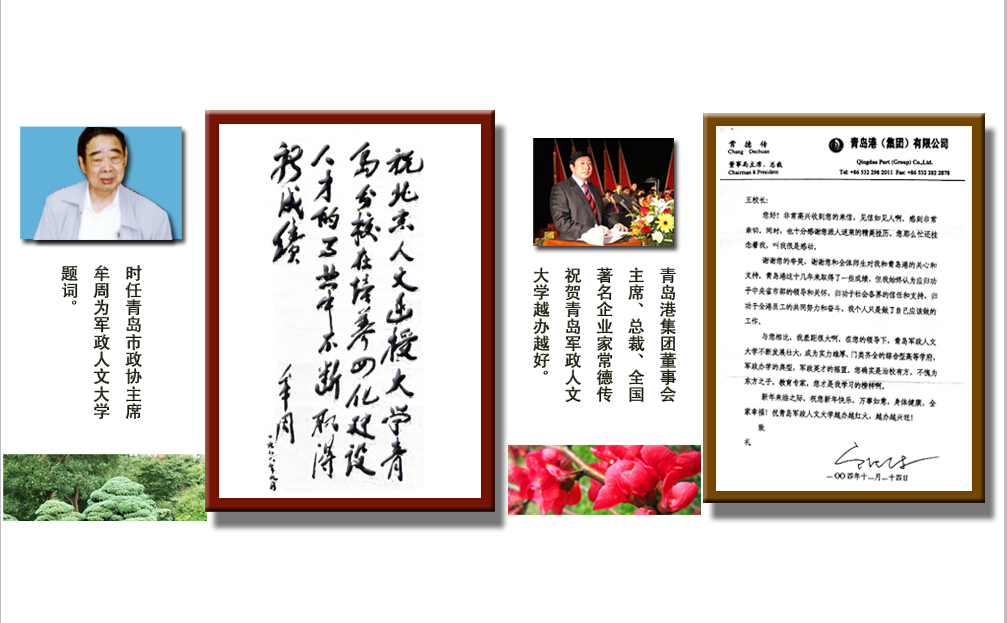 时任青岛市政协主席
牟周为军政人文大学
题词。
祝北京人文函授大学青
岛分校在培养四化建设
人才的事业中不断取得
新成绩
牟周
一九八八年九月
青岛港集团董事会
主席、总裁、全国
著名企业家常德传
祝贺青岛军政人文
大学越办越好。
常德传
Chang Dechuan
董事局主席、总裁
Chairman & President
青岛港（集团）有限公司
Qingdao Port (Group) Co.,Ltd.
Tel: +86 532 298 2011 Fax: +86 532 282 2878
王校长：
您好！非常高兴收到您的来信，见信如见人啊，感到非常
亲切。同时，也十分感谢您派人送来的精美挂历，您那么忙还挂
念着我，叫我很是感动。
谢谢您的夸奖，谢谢您和全体师生对我和青岛港的关心和
支持。青岛港这十几年来取得了一些成绩，但我始终认为应归功
于中央省市部的领导和关怀，归功于社会各界的信任和支持，归
功于全港员工的共同努力和奋斗，我个人只是做了自己应该做的
工作。
与您相比，我差距很大啊。在您的领导下，青岛军政人文
大学不断发展壮大，成为实力雄厚、门类齐全的综合型高等学府，
军政办学的典型，军政英才的摇篮。您确实是治校有方，不愧为
东方之子，教育专家，您才是我学习的榜样啊。
新年来临之际，祝您新年快乐，万事如意，身体健康，全
家幸福！祝青岛军政人文大学越办越红火，越办越兴旺！
致
礼
二〇〇四年十二月二十四日